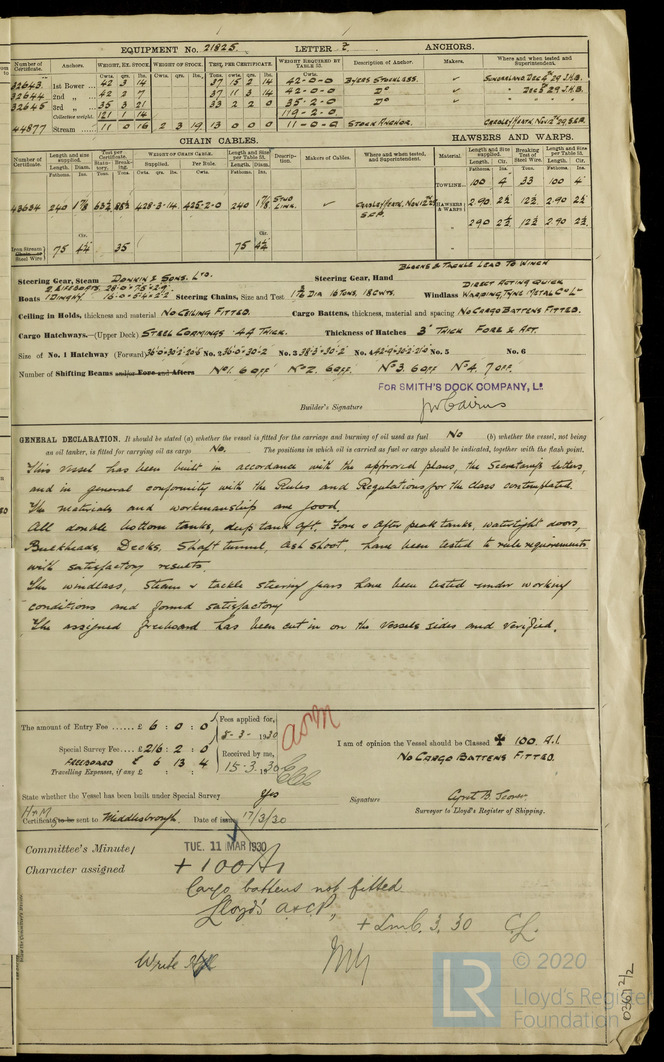 EQUIPMENT No. 21825. LETTER Z. ANCHORS.
Number of Certificate. Anchors. WEIGHT, EX. STOCK. WEIGHT OF STOCK. TEST, PER CERTIFICATE. WEIGHT REQUIRED BY TABLE 22. Description of Anchor. Makers. Where and when tested and Superintendent.
Cwts. qrs. lbs. Cwts. qrs. lbs. Tons. cwts. qrs. lbs. Cwts.
32643 1st Bower 42 3 14 37 15 2 14 42-0-0 BYERS STOCKLESS. SUNDERLAND, DEC 4th 29 J.H.B.
32644 2nd " 42 2 7 37 11 3 14 42-0-0 Do " DEC 3rd 29 J.H.B.
32645 3rd " 35 3 21 33 2 2 0 35-2-0 Do " " "
Collective weight. 121 1 14 119-2-0
44877 Stream 11 0 16 2 3 19 13 0 0 0 11-0-0 STOCK ANCHOR. CRADLEY HEATH, NOV 12th 29, S.E.P.
CHAIN CABLES. HAWSERS AND WARPS.
Number of Certificate. Length and size supplied. Test per Certificate. WEIGHT OF CHAIN CABLE. Length and Size per Table 22. Description. Makers of Cables. Where and when tested, and Superintendent. Material. Length and Size supplied. Breaking Test of Steel Wire. Length and Size per Table 22.
Length. Diam. Statutory. Breaking. Supplied. Per Rule. Length. Diam. Length. Cir. Length. Cir.
Fathoms Ins. Tons. Tons. Cwts. qrs. lbs. Cwts. Fathoms Ins. Fathoms Ins. Tons. Fathoms Ins.
TOWLINE 100 4 33 100 4
43634 240 1 7/8 63 1/4 88 1/2 428-3-14 425-2-0 240 1 7/8 STUD LINK. CRADLEY HEATH, NOV 12th 29 S.E.P. HAWSERS & WARPS 2.90 2 1/2 12 1/2 2.90 2 1/2
" 290 2 1/2 12 1/2 2.90 2 1/2
Iron Stream Chain or Steel Wire 75 4 1/2 35 75 4 1/2 "
BLOCKS & TACKLE LEAD TO WINCH
Steering Gear, Steam DONKIN & SONS. LTD. Steering Gear, Hand
Boats 2 LIFEBOATS. 28·0 x 7·5 x 2·9
1 DINGHY. 16·0 x 5·6 x 2·2 Steering Chains, Size and Test 1 3/16 DIA 16 TONS. 18 CWTS. Windlass DIRECT ACTING QUICK WARPING, TYNE METAL Co Ld
Ceiling in Holds, thickness and material NO CEILING FITTED. Cargo Battens, thickness, material and spacing NO CARGO BATTENS FITTED.
Cargo Hatchways.—(Upper Deck) STEEL COAMINGS .44 THICK. Thickness of Hatches 3" THICK FORE & AFT.
Size of No. 1 Hatchway (Forward) No. 2 36·0 x 30·2 No. 3 38·3 x 30·2 No. 4 No. 5 No. 6
Number of Shifting Beams and/or Fore and Afters No 1. 6 OFF No 2. 6 OFF. No 3. 6 OFF No 4. 7 OFF.
FOR SMITH'S DOCK COMPANY, LD.
Builder's Signature JW Cairns
GENERAL DECLARATION. It should be stated (a) whether the vessel is fitted for the carriage and burning of oil used as fuel No (b) whether the vessel, not being
an oil tanker, is fitted for carrying oil as cargo No. The positions in which oil is carried as fuel or cargo should be indicated, together with the flash point.
This vessel has been built in accordance with the approved plans, the Secretary's letters,
and in general conformity with the Rules and Regulations for the class contemplated.
The materials and workmanship are good.
All double bottom tanks, deep tank aft, Fore & After peak tanks, watertight doors,
Bulkheads, Decks, Shaft tunnel, ash shoot, have been tested to rule requirements
with satisfactory results.
The windlass, Steam & tackle steering gears have been tested under working
conditions and found satisfactory
The assigned freeboard has been cut in on the vessels sides and verified.
The amount of Entry Fee £ 6 : 0 : 0 Fees applied for,
8-3-1930
Special Survey Fee £ 216 : 2 : 0 I am of opinion the Vessel should be Classed ✠ 100. A.1.
FREEBOARD £ 6 13 4 Received by me, NO CARGO BATTENS FITTED.
Travelling Expenses, if any £ : : 15.3.1930
State whether the Vessel has been built under Special Survey Yes Signature
H+M Surveyor to Lloyd's Register of Shipping.
Certificate to be sent to Middlesbrough. Date of issue 17/3/30
Committee's Minute TUE. 11 MAR 1930
Character assigned + 100A1
Cargo battens not fitted
Lloyd's A & CP.,
+ LMC. 3. 30 CL.
Write
036 1 2/2
LR © 2020
Lloyd's Register
Foundation